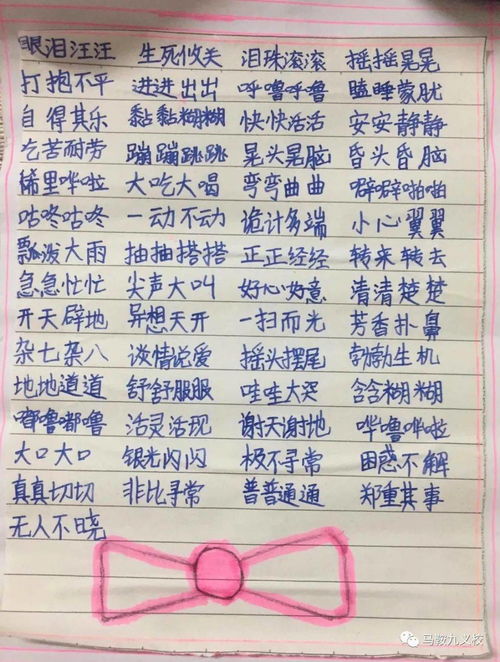 眼泪汪汪 生死攸关 泪珠滚滚 摇摇晃晃
打抱不平 进进出出 呼噜呼鲁 瞌睡蒙胧
自得其乐 黏黏糊糊 快快活活 安安静静
吃苦耐劳 蹦蹦跳跳 晃头晃脑 昏头昏脑
稀里哗啦 大吃大喝 弯弯曲曲 噼噼啪啪
咕咚咕咚 一动不动 诡计多端 小心翼翼
瓢泼大雨 抽抽搭搭 正正经经 转来转去
急急忙忙 尖声大叫 好心好意 清清楚楚
开天辟地 异想天开 一扫而光 芳香扑鼻
杂七杂八 谈情说爱 摇头摆尾 勃勃生机
地地道道 舒舒服服 哇哇大哭 含含糊糊
嘟噜嘟噜 活灵活现 谢天谢地 哗噜哗啦
大口大口 银光闪闪 极不寻常 困惑不解
真真切切 非比寻常 普普通通 郑重其事
无人不晓
马鞍九义校